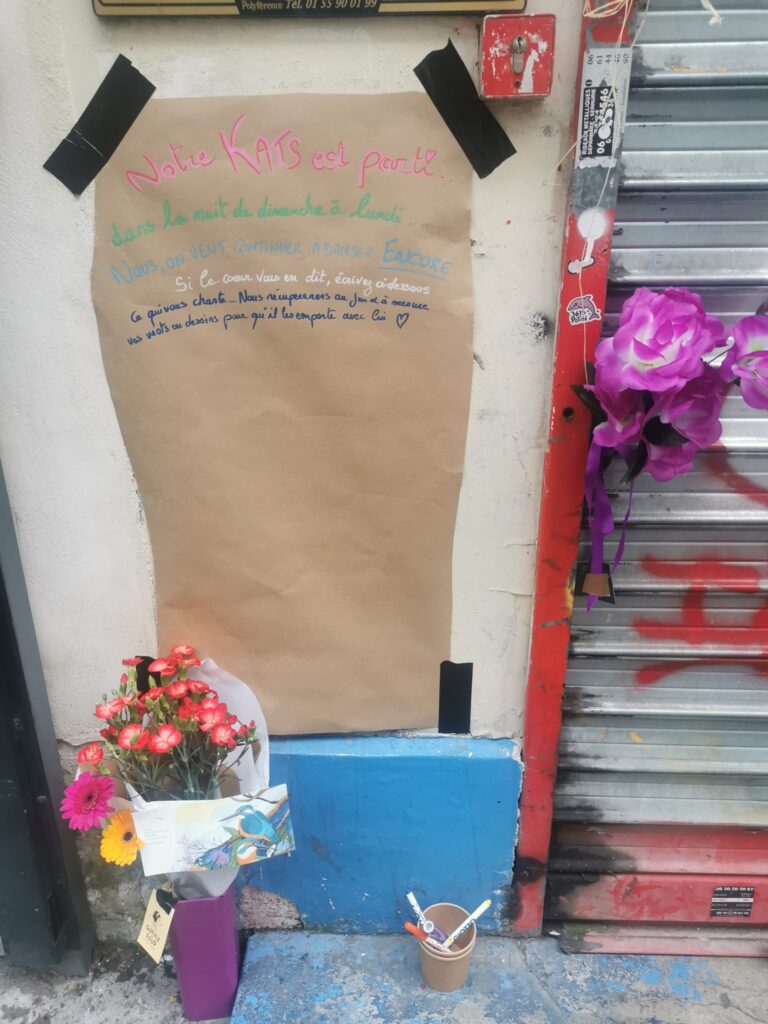 Polyférence Tél. 01 55 90 01 99
Notre KATS est parti...
dans la nuit de dimanche à lundi
Nous, on veut continuer à danser ENCORE
Si le cœur vous en dit, écrivez ci-dessous
Ce qui vous chante... Nous récupérerons au fur & à mesure
vos mots ou dessins pour qu'il les emporte avec lui ♡
RIDEAUX METALLIQUES